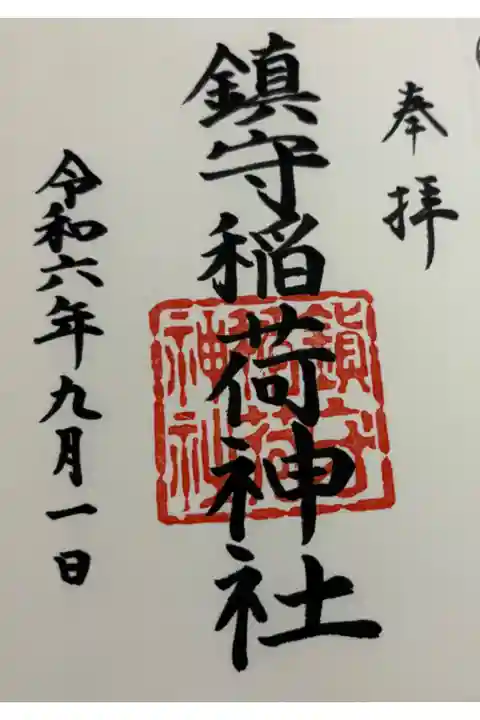 奉拝
鎮守稲荷神社
鎮守
稲荷
神社
令和六年九月一日